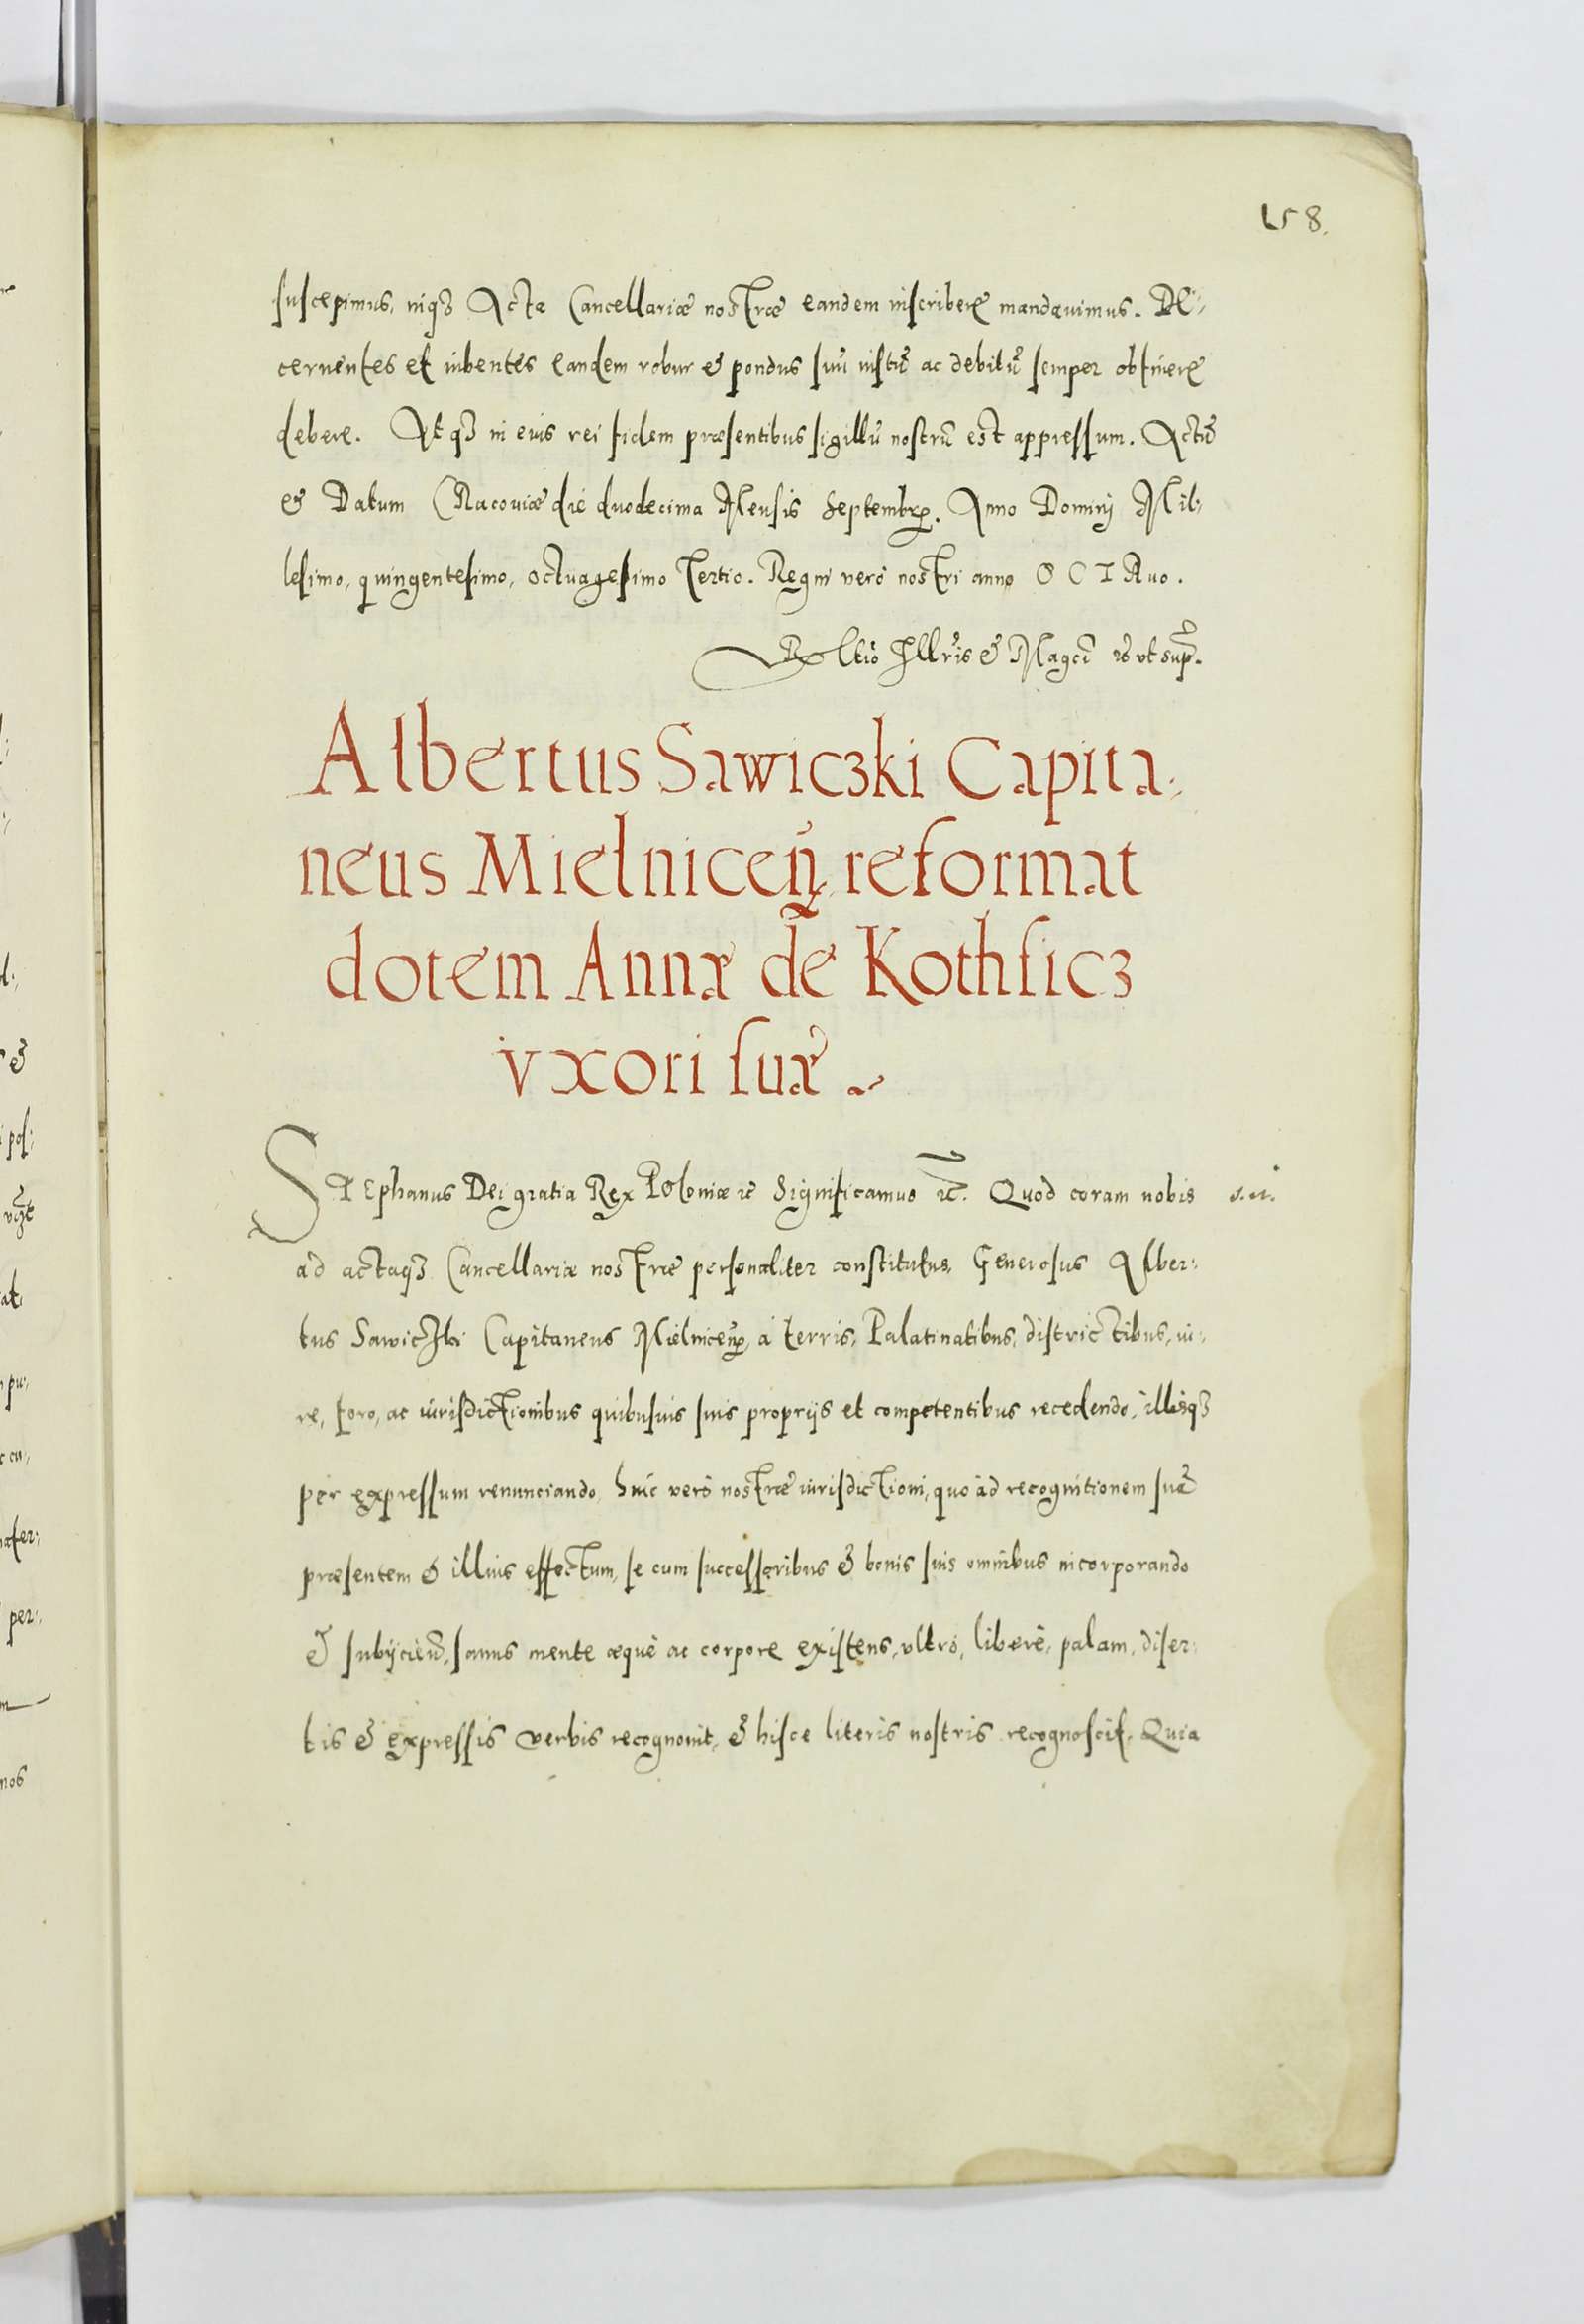 158.
suscepimus, inq3 Acta Cancellariæ nostræ eandem inscribere mandauimus. De,
cernentes et iubentes eandem robur & pondus suũ iustũ ac debitũ semper obtinere
debere. Atq3 in eius rei fidem præsentibus sigillũ nostrũ est appressum. Actũ
& Datum CRacouiæ die duodecima Mensis Septembr. Anno Dominj Mil,
lesimo, quingentesimo, octuagesimo tertio. Regni verò nostri anno OCTAuo.
Rltio Illris & Magci &c vt sup.
Albertus Sawiczki Capita,
neus Mielniceñ reformat
dotem Annæ de Kothficz
vxori suæ
STEphanus Dei gratia Rex Poloniæ &c Significamus &c. Quod coram nobis
ad actaq3 Cancellariæ nostræ personaliter constitutus Generosus Alber,
tus Sawiczki Capitaneus Mielniceñ, à terris, Palatinatibus, districtibus, iu,
re, foro, ac iurisdictionibus quibusuis suis proprijs et competentibus recedendo, illisq3
per expressum renunciando, huic verò nostræ iurisdictioni, quo ad recognitionem suã
præsentem & illius effectum, se cum successoribus & bonis suis omnibus incorporando
& subijcieñ, sanus mente æquè ac corpore existens, vltrò, liberè, palam, diser,
tis & expressis verbis recognouit, & hisce literis nostris recognoscit. Quia